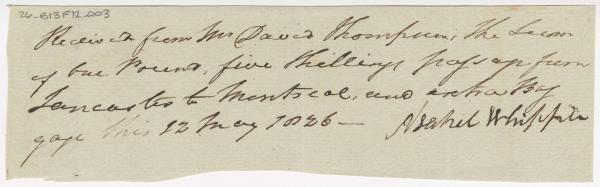 26-B13F12-003
Received from Mr David Thompson, the Sum
of One Pound, five Shillings passage from
Lancaster to Montreal, and extra Bag
gage this 12 May 1826 — Asahel Whipple